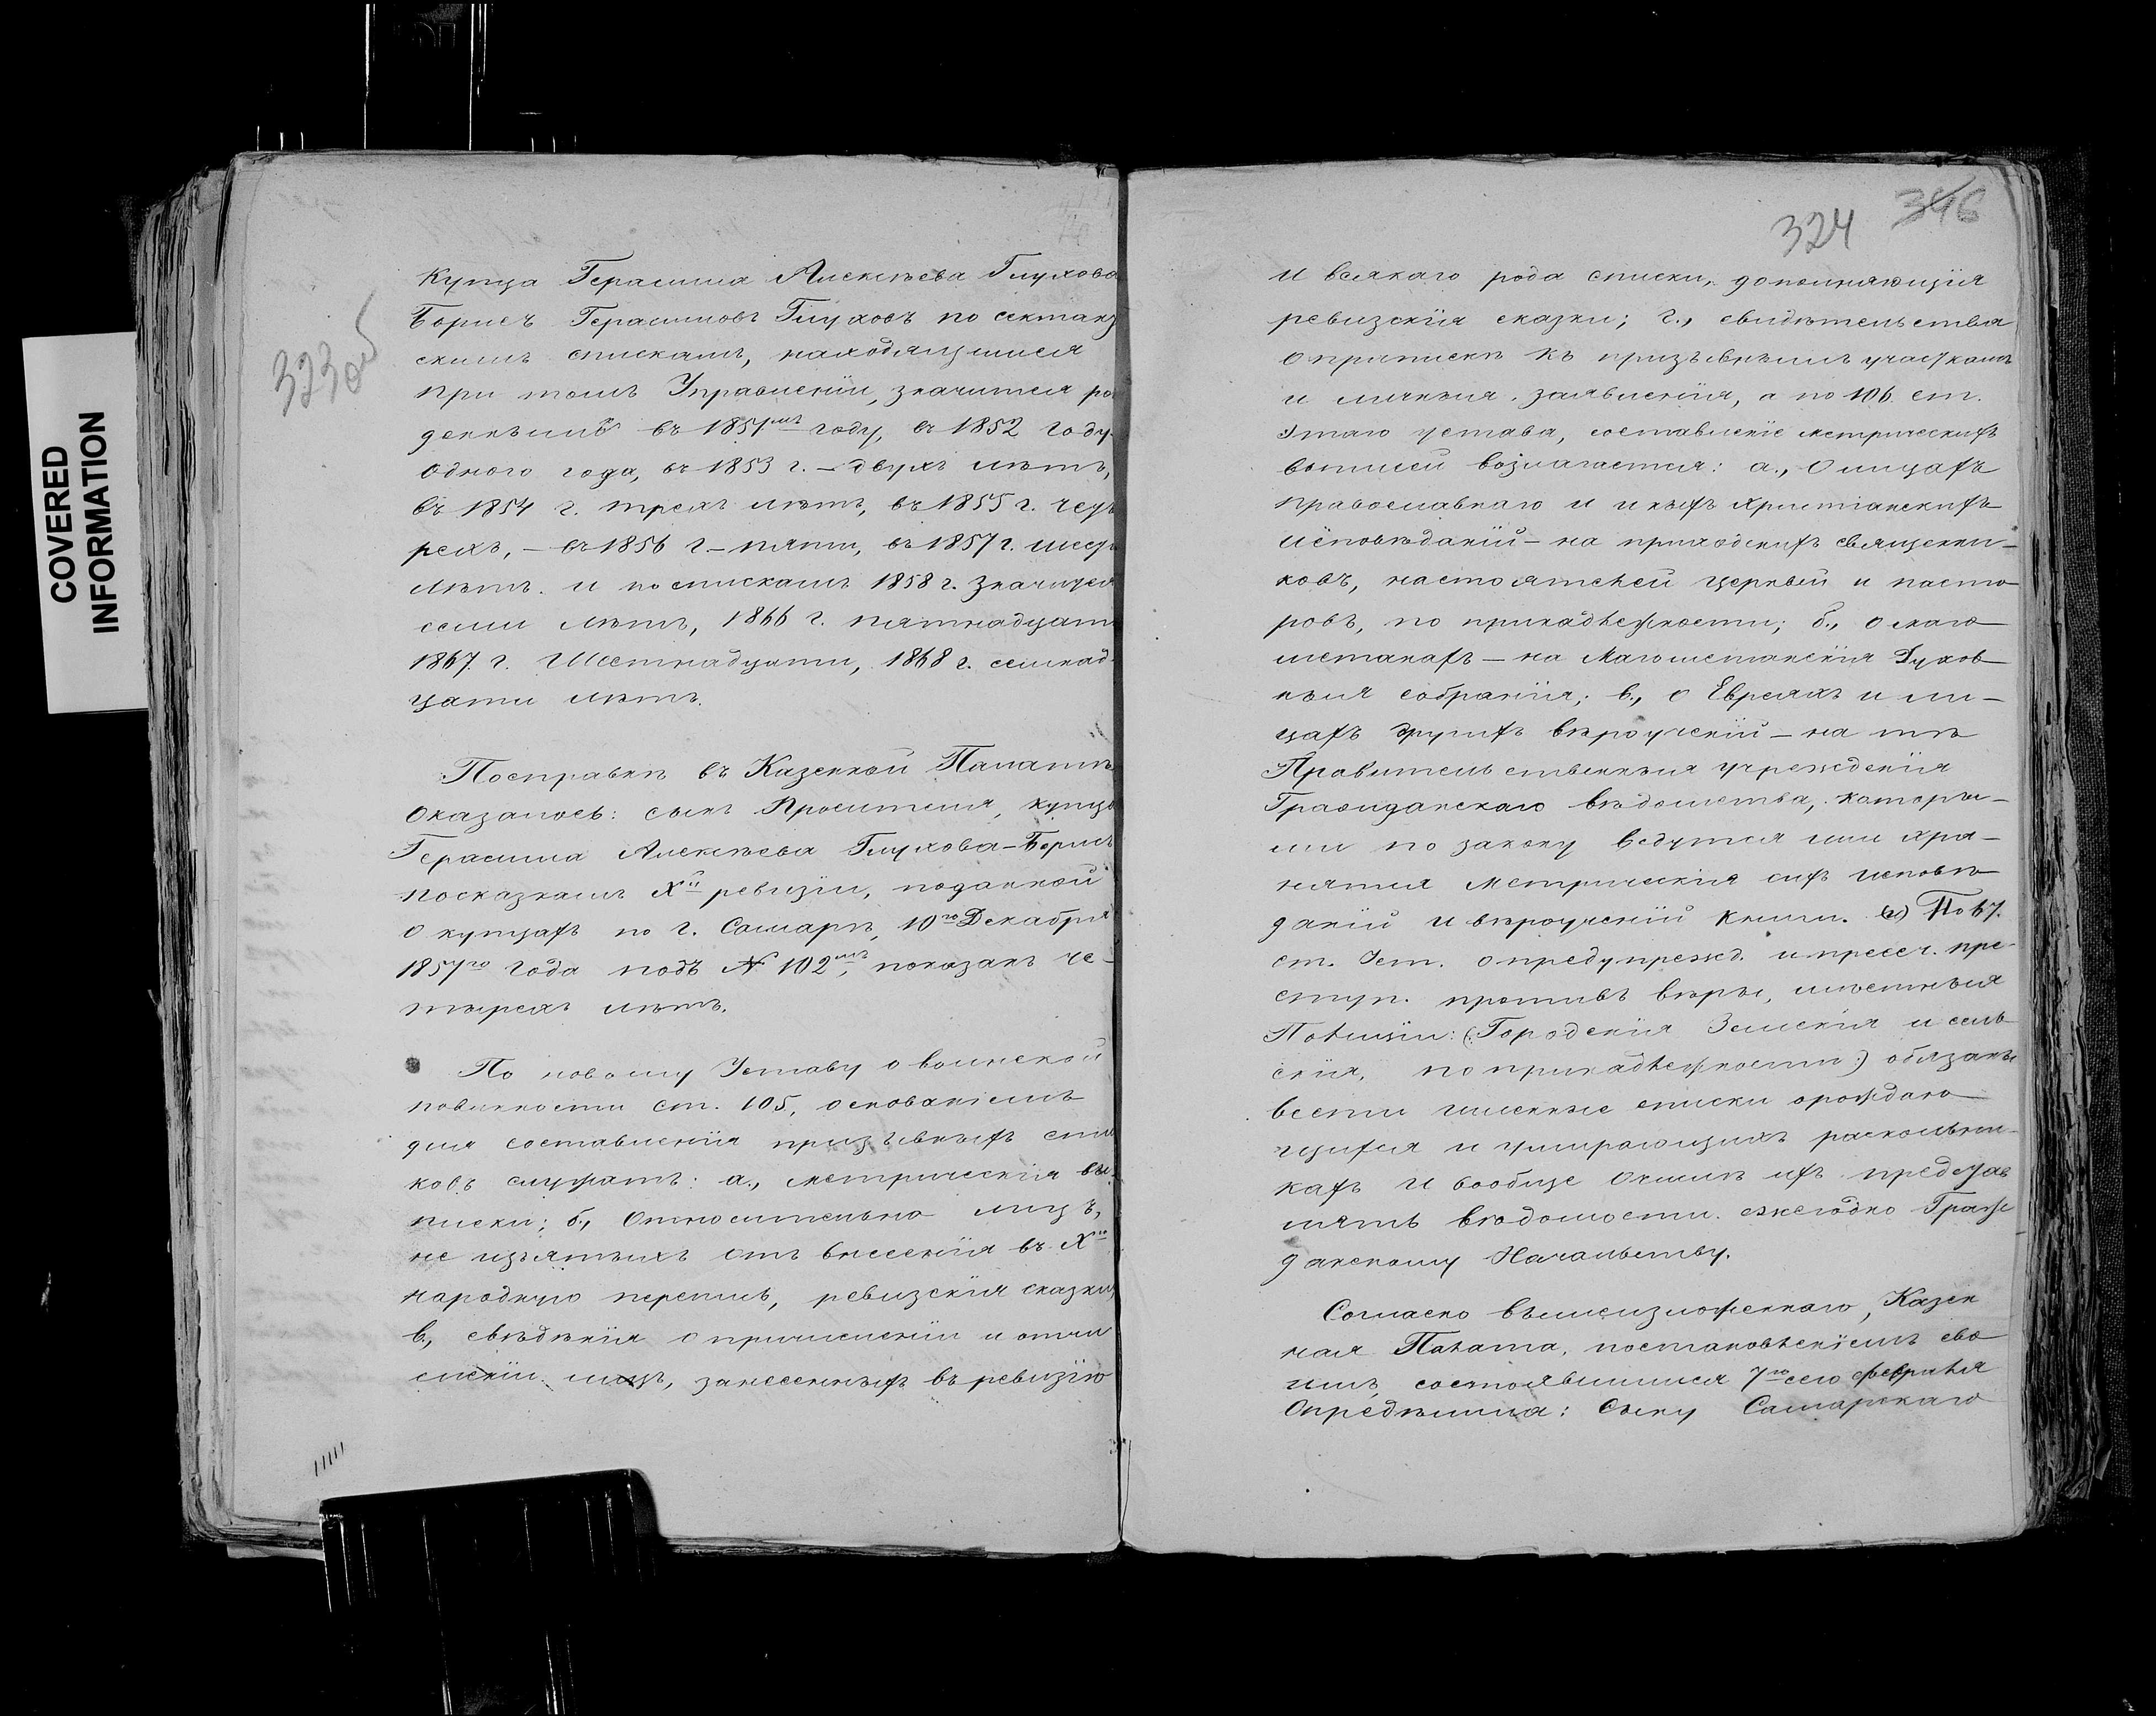 COVERED
INFORMATION
323об
купца Герасима Алексѣева Глухова
Борисъ Герасимовъ Глуховъ по сектант
скимъ спискамъ, находящимся
при томъ Управленіи, значится ро
деннымъ въ 1851мъ году, въ 1852 году
одного года, въ 1853 г. – двухъ лѣтъ,
въ 1854 г. трехъ лѣтъ, въ 1855 г. четы
рехъ, – въ 1856 г – пяти, въ 1857 г. шести
лѣтъ. и по спискамъ 1858 г. значится
семи лѣтъ, 1866 г. пятнадцати
1867. г. Шестнадцати, 1868 г. семнад-
цати лѣтъ.
По справкѣ въ Казенной Палатѣ
оказалось: сынъ Просителя, купца
Герасима Алексѣева Глухова – Борисъ
по сказкамъ Xй ревизіи, поданной
о купцахъ по г. Самарѣ, 10го Декабря
1857го года подъ № 102мъ, показанъ че-
тырехъ лѣтъ.
По новому Уставу о воинской
повинности ст. 105, основаніемъ
для составленія призывныхъ спис
ковъ служатъ: а., метрическія вы
писки; б., Относительно лицъ,
не изъятыхъ отъ внесенія въ Xю
народную перепись, ревизскія сказки,
в., свѣдѣнія о причисленіи и отчи
сленіи лицъ, занесенныхъ въ ревизію
324 346
и всякаго рода списки, дополняющія
ревизскія сказки; г., свидѣтельства
о припискѣ къ призывнымъ участкамъ
и личныя заявленія, а по 106 ст.
этаго устава, составленіе метрическихъ
выписей возлагается: а., О лицахъ
православнаго и иныхъ христіанскихъ
исповѣданій – на приходскихъ священни–
ковъ, настоятелей церквей и пасто
ровъ, по принадлежности; б., о маго
метанахъ – на Магометанскія Духов–
ныя собранія; в., о Евреяхъ и ли–
цахъ другихъ вѣроученій – на тѣ
Правительственныя учрежденія
Гражданскаго вѣдомства, которы–
ми по закону ведутся или хра–
нятся метрическія сихъ исповѣ
даній и вѣроученій книги. По 67.
ст. Уст. о предупрежд. и пресеч. пре-
ступ. противъ вѣры, мѣстныя
Полиціи: (Городскія Земскія и сель
скія, по принадлежности:) обязаны
вести именные списки о рождаю
щихся и умирающихъ раскольни-
кахъ и вообще о нихъ представ
лять вѣдомости ежегодно Граж
данскому Начальству.
Согласно вышеизложеннаго, Казен
ная Палата, постановленіемъ сво
имъ, состоявшимся 7го сего февраля
Опредѣлила: Сыну Самарскаго